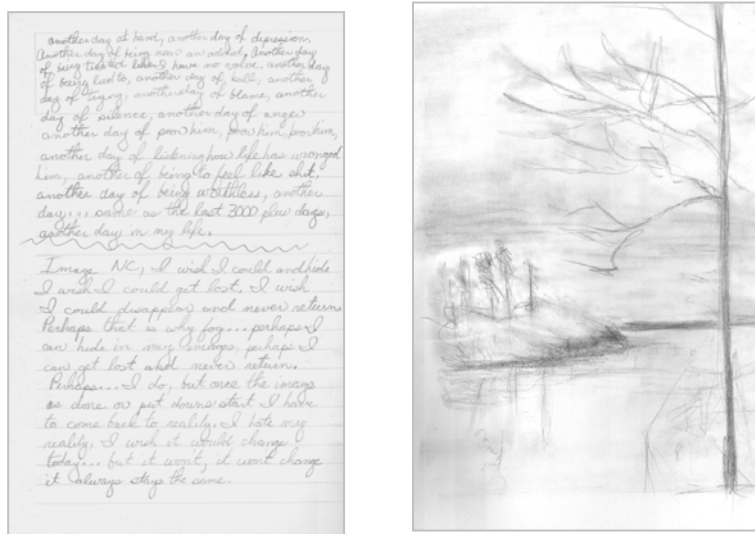 another day at hand, another day of depression.
Another day of being near an addict, Another day
of being treated like I have no value, another day
of being lied to, another day of bull, another
day of crying, another day of blame, another
day of silence, another day of anger
another day of poor him, poor him, poor him,
another day of listening how life has wronged
him, another of being to feel like shit,
another day of being worthless, another
day... same as the last 3000 plus days,
another day in my life.
Image NC, I wish I could and hide
I wish I could get lost, I wish
I could disappear and never return
Perhaps that is why fog... perhaps I
can hide in my images, perhaps I
can get lost and never return.
Perhaps... I do, but once the image
is done or put down start I have
to come back to reality, I hate my
reality, I wish it would change
today... but it won't, it wont change
it always stays the same.